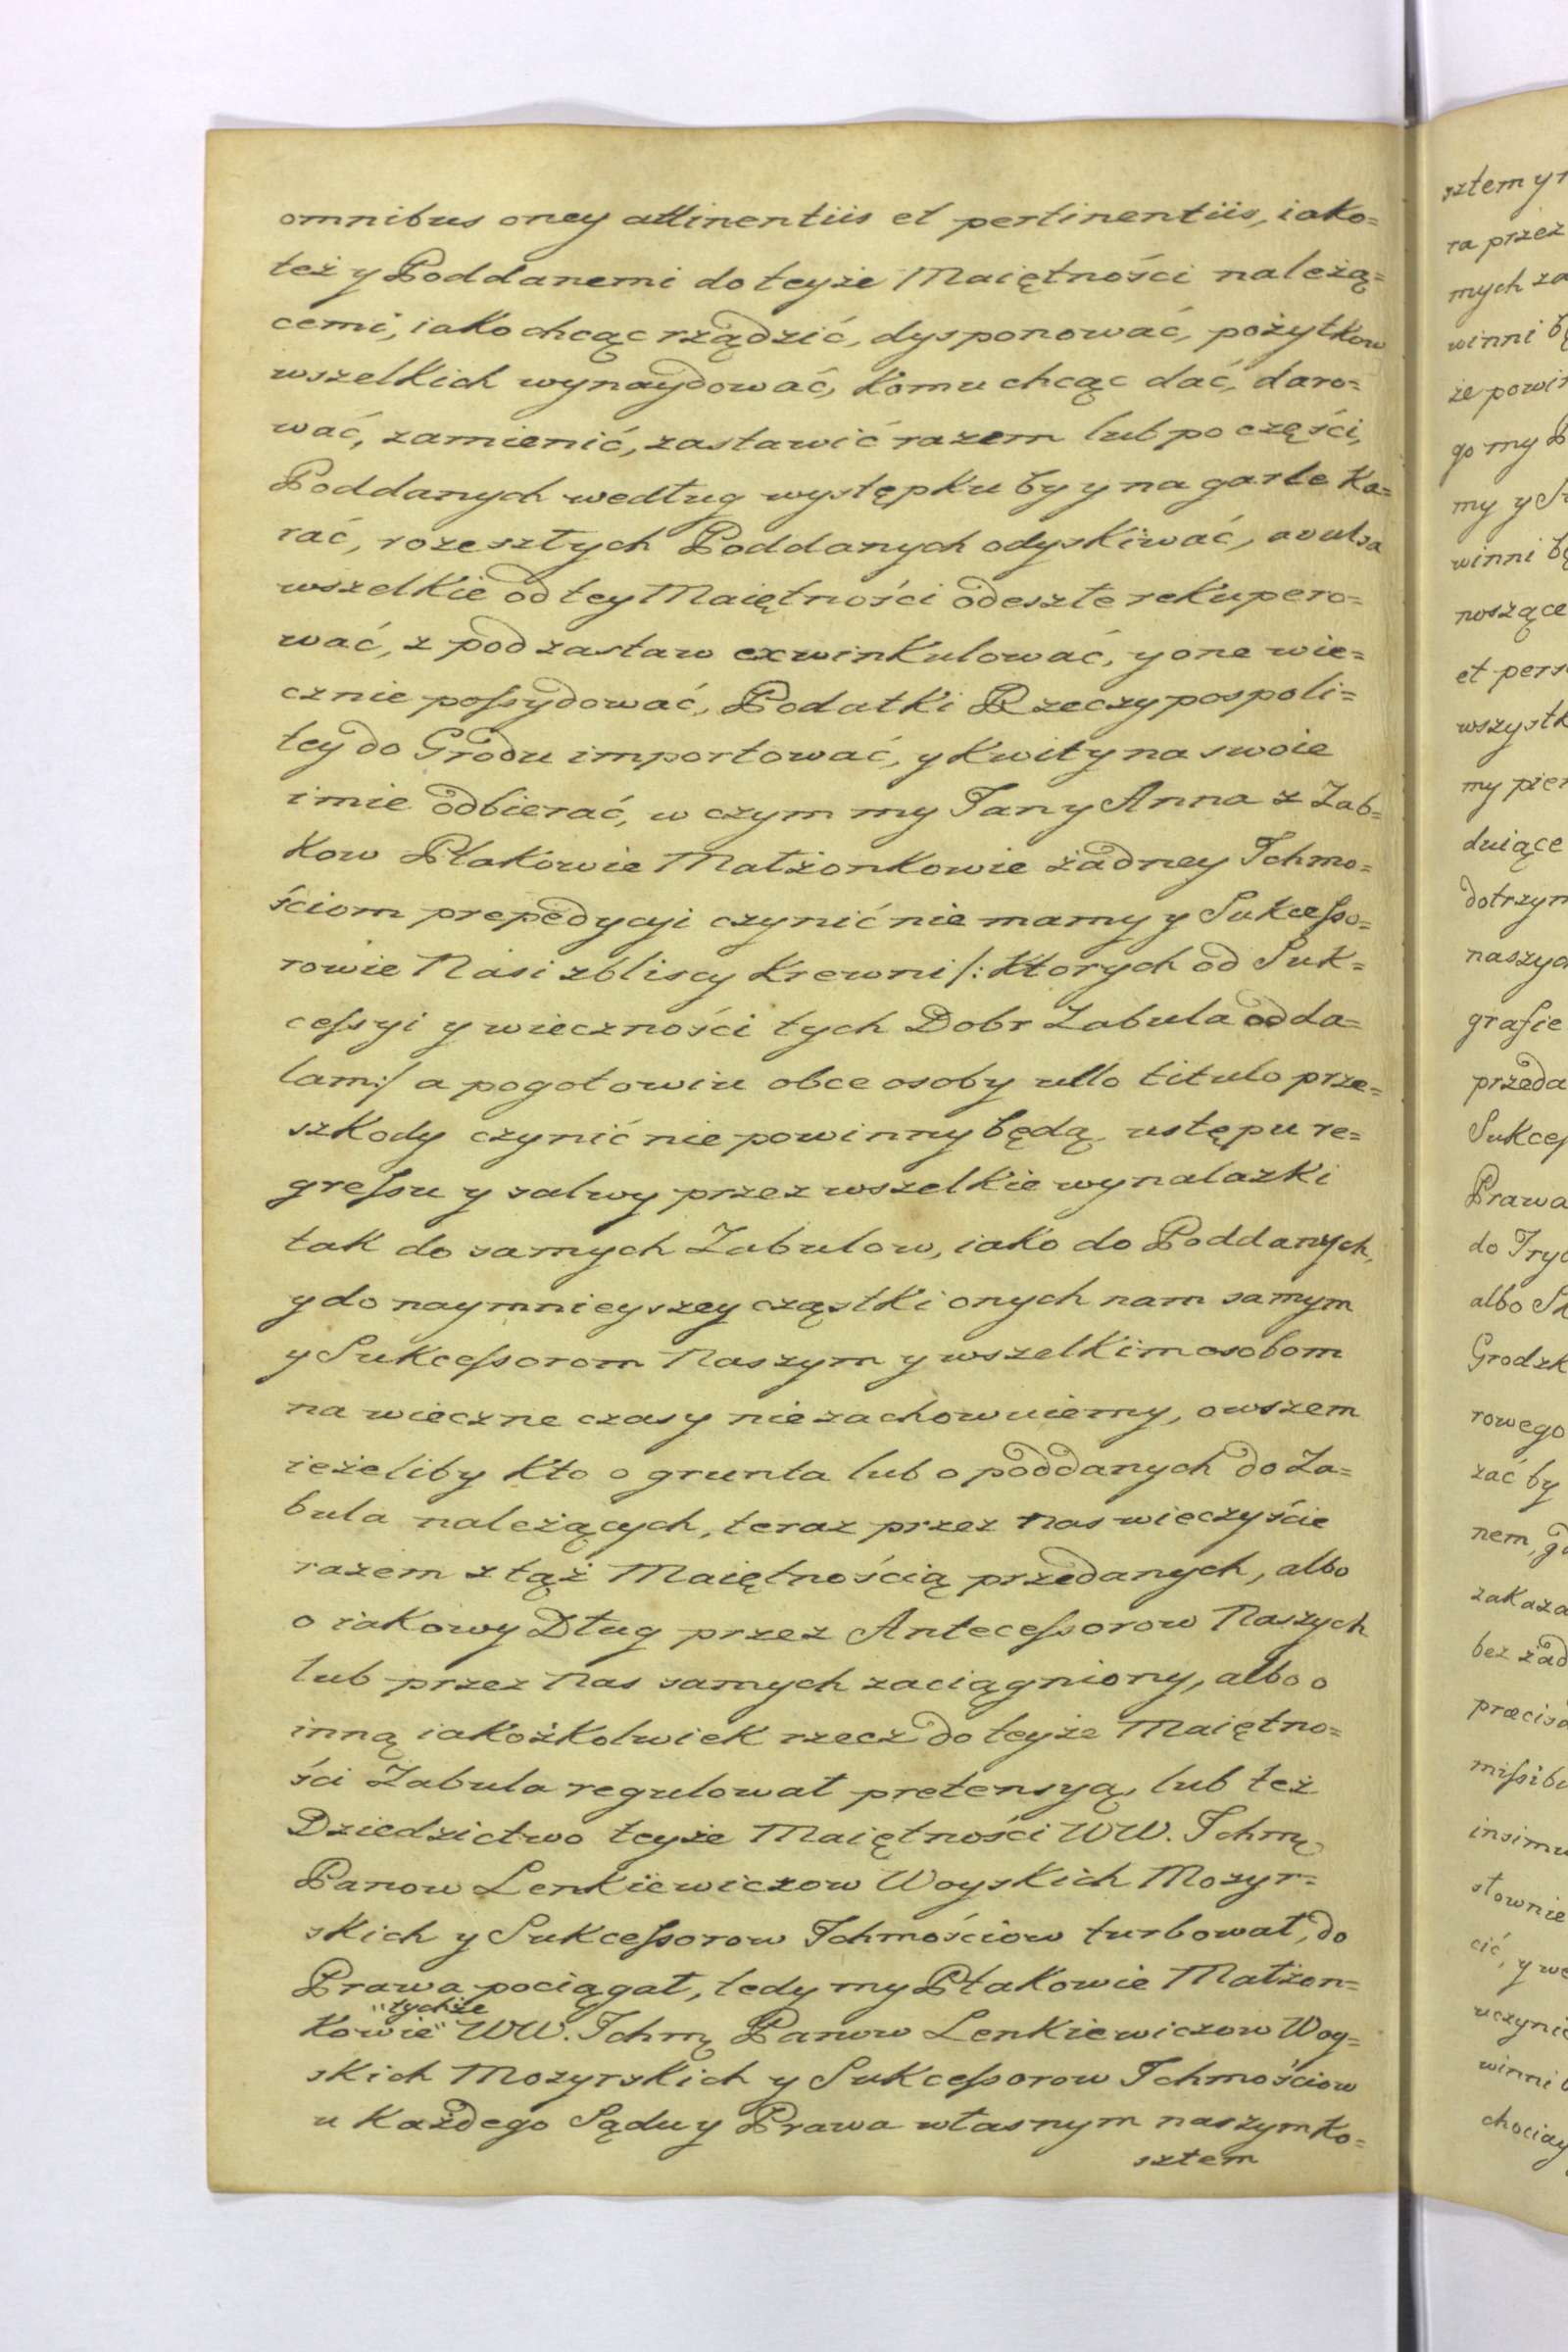 omnibus oney attinentiis et pertinentiis, iako=
też y Poddanemi do teyże Maiętności należą=
cemi, iako chcąc rządzić, dysponować, pożytkow
wszelkich wynaydować, komu chcąc dać, daro=
wać, zamienić, zastawić razem lub po części,
Poddanych według występku by y na garle ka=
rać, rozeszłych Poddanych odyskiwać, avulsa
wszelkie od tey Maiętności odeszłe rekupero=
wać, z pod zastaw exwinkulować, y one wie=
cznie poſsydować, Podatki Rzeczypospoli=
tey do Grodu importować, y kwity na swoie
imie odbierać, w czym my Jan y Anna z Zab=
kow Ptakowie Małżonkowie żadney Ichmo=
ściom prepedycyi czynić nie mamy y Sukceſso=
rowie Nasi zbliscy Krewni /: ktorych od Suk=
ceſsyi y wieczności tych Dobr Zabula odda=
lam :/ a pogotowiu obce osoby ullo titulo prze=
szkody czynić nie powinny będą, ustępu re=
greſsu y salwy przez wszelkie wynalazki
tak do samych Zabulow, iako do Poddanych,
y do naymnieyszey cząstki onych nam samym
y Sukceſsorom Naszym y wszelkim osobom
na wieczne czasy nie zachowuiemy, owszem
ieżeliby kto o grunta lub o poddanych do Za=
bula należących, teraz przez nas wieczyście
razem z tąż Maiętnością przedanych, albo
o iakowy Dług przez Anteceſsorow Naszych
lub przez Nas samych zaciągniony, albo o
inną iakożkolwiek rzecz do teyże Maiętno=
ści Zabula regulował pretensyą, lub też
Dziedzictwo teyże Maiętności WW. Ichmę
Panow Lenkiewiczow Woyskich Mozyr=
skich y Sukceſsorow Ichmościow turbował, do
Prawa pociągał, tedy my Ptakowie Małżon=
"tychże
kowie" WW. Ichmę Panow Lenkiewiczow Woy=
skich Mozyrskich y Sukceſsorow Ichmościow
u każdego Sądu y Prawa własnym naszym ko=
sztem
sztem y
ra przez
mych za
winni
że powin
go my
my y
winni
noszące
et pers
wszystk
my pien
duiące
dotrzym
naszyc
grafie
przeda
Sukceſ
Prawa
do Try
albo
Grodzk
rowego
zać by
nem,
zakaza
bez żad
præcisa
miſsibu
insimu
słownie
cić, y we
uczynić
winni
chociay